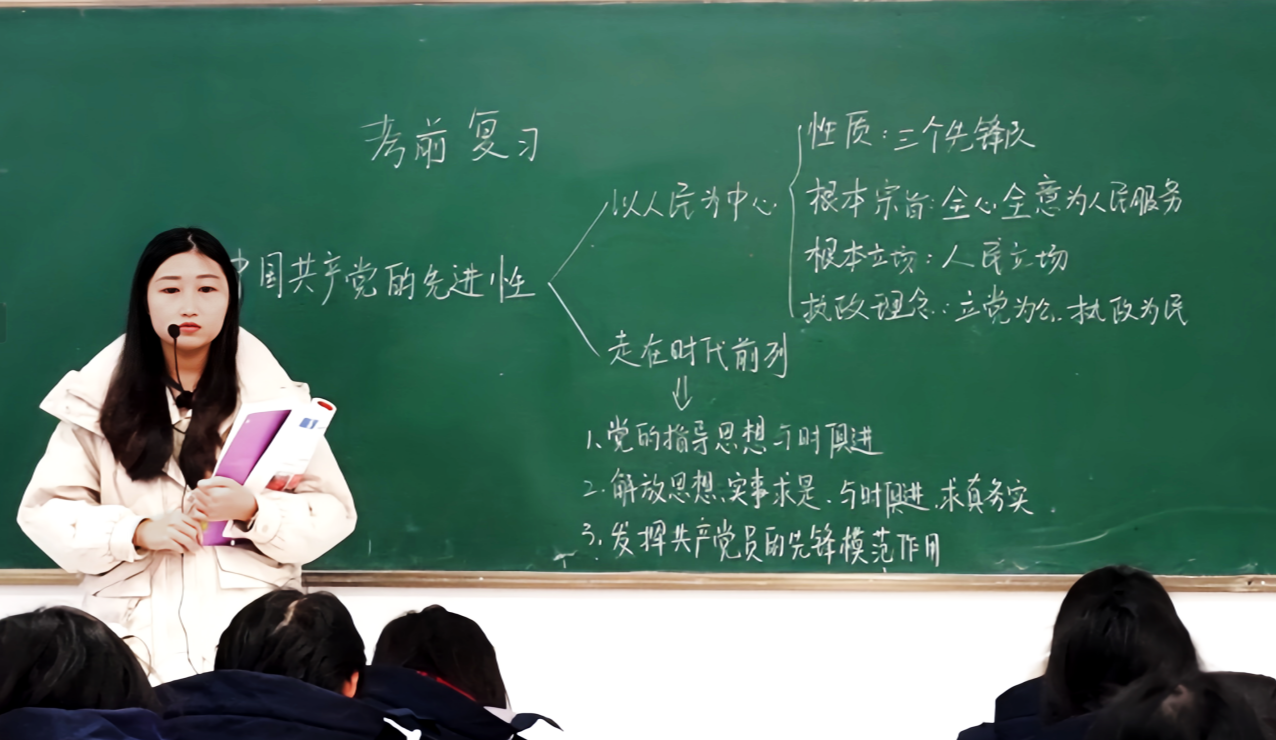 考前复习
中国共产党的先进性
以人民为中心
性质：三个先锋队
根本宗旨：全心全意为人民服务
根本立场：人民立场
执政理念：立党为公、执政为民
走在时代前列
⇓
1、党的指导思想与时俱进
2、解放思想、实事求是、与时俱进、求真务实
3、发挥共产党员的先锋模范作用